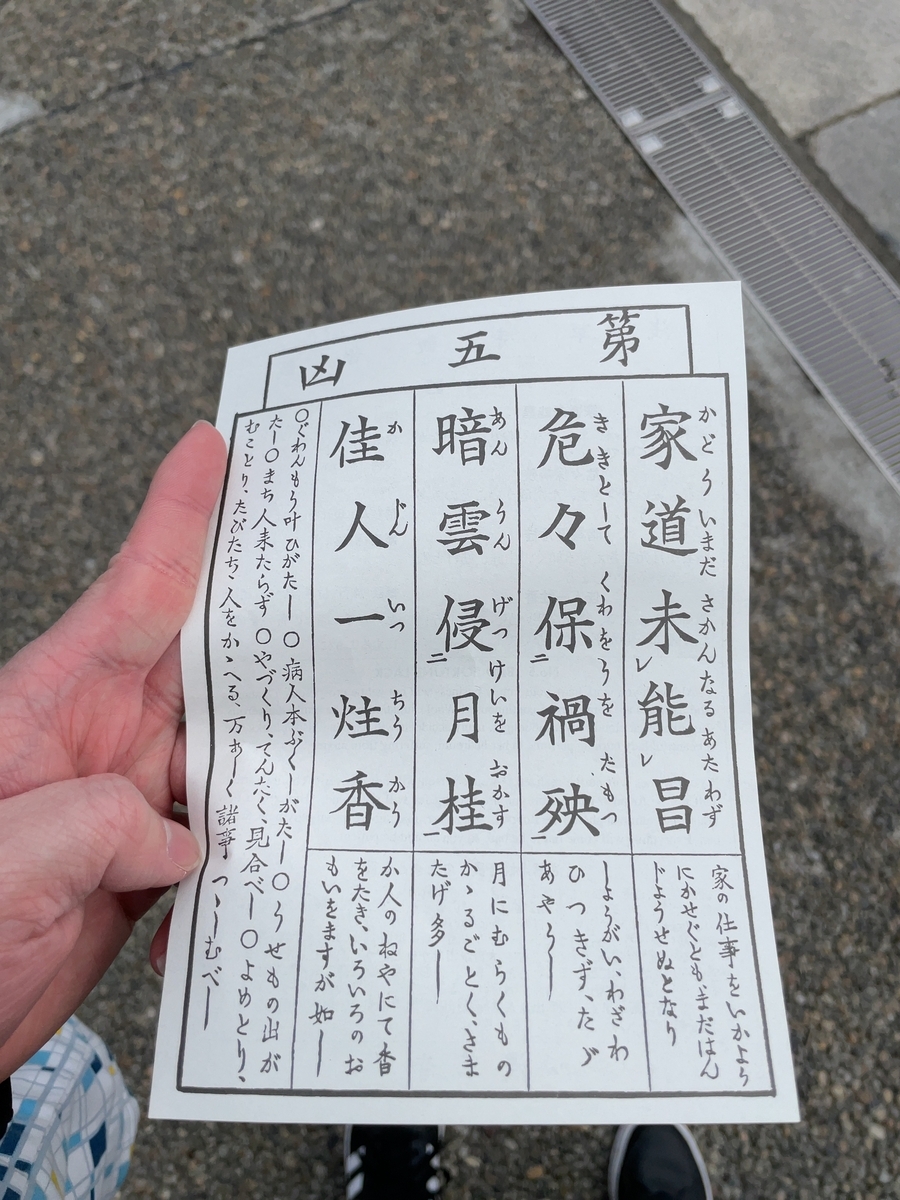 第五凶
家道未能昌
かどういまださかんなるあたわず
家の仕事をいかよう
にかせぐともまだはん
じようせぬとなり
危々保禍殃
ききとしてくわをうをたもつ
しようがい、わざわ
ひつきず、たゞ
あやうし
暗雲侵月桂
あんうんげつけいをおかす
月にむらくもの
かゝるごとく、さま
たげ多し
佳人一炷香
かじんいっちうかう
か人のねやにて香
をたき、いろいろのお
もいをますが如し
〇ぐわんもう叶ひがたし〇病人本ぶくしがたし〇うせもの出が
たし〇まち人来たらず〇やづくり、てんたく、見合べし〇よめとり、
むことり、たびたち、人をかゝへる、万あしく諸事つゝしむべし